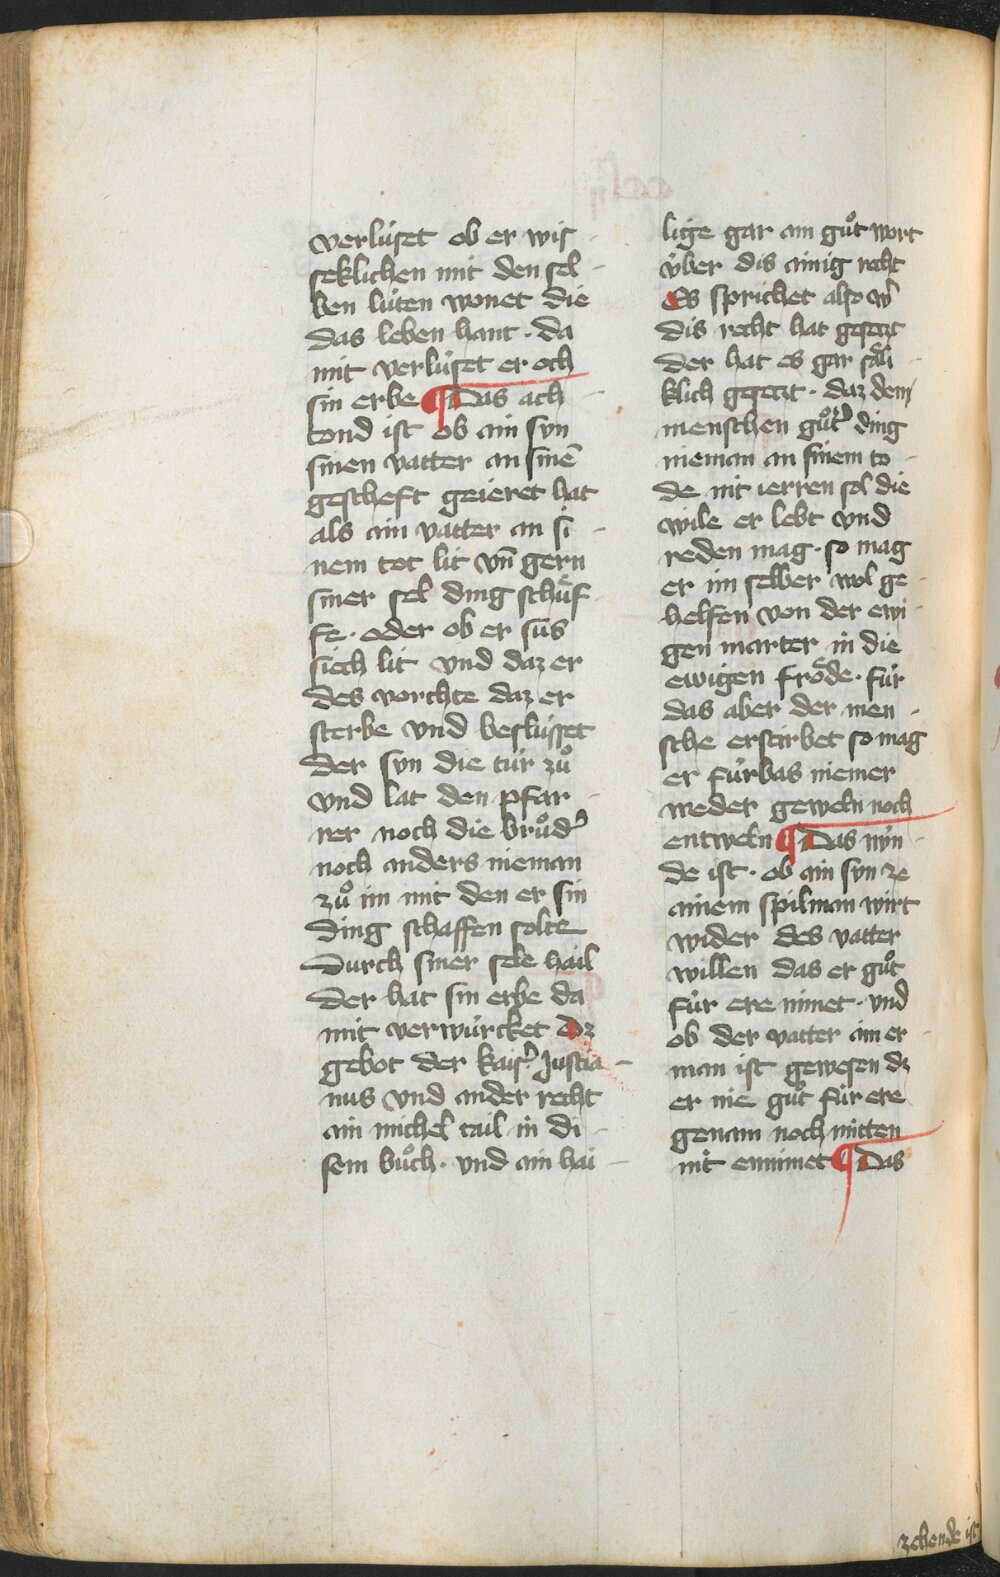 verlúset ob er wis
seklichen mit den sel -
ben lúten wonet die
das leben hant · da
mit verlúset er och
sin erbe ¶ Das ach -
tond ist ob ain syn
sinen vatter an sinē
gescheft geieret hat
als ain vatter an si -
nem tot lit vn̄ gern
siner sel ding schuͤf -
fe · oder ob er sus
siech lit vnd daz er
des vorchte daz er
sterbe vnd beslússet
der syn die túr zuͦ
vnd lat den pfar -
rer noch die bruͦd'
noch anders nieman
zuͦ im mit den er sin
ding schaffen solte
Durch siner sele hail
der hat sin erbe da
mit verwúrcket Dz
gebot der kais' Justia -
nus vnd ander recht
ain michel tail in di -
sem buͦch · vnd ain hai -
lige gar ain guͦt wort
v́ber dis ainig recht
Es sprichet also w'
dis recht hat gesetzt
der hat es gar saͤli
klich gesetzt · daz dem
menschen guͦt' ding
nieman an sinem to -
de nit ierren sol die
wile er lebt vnd
reden mag · so mag
er im selber wol ge -
helfen von der ewi -
gen marter in die
ewigen froͤde · fúr
das aber der men -
sche erstirbet so mag
er fúrbas niemer
weder geweln noch
entweln ¶ Das nv́n -
de ist · ob ain syn ze
ainem spilman wirt
wider des vatter
willen das er guͦt
fúr ere nimet · vnd
ob der vatter ain er -
man ist gewesen dz
er nie guͦt fúr ere
genam noch mitten
nit ennimet ¶ Das
zehende ist